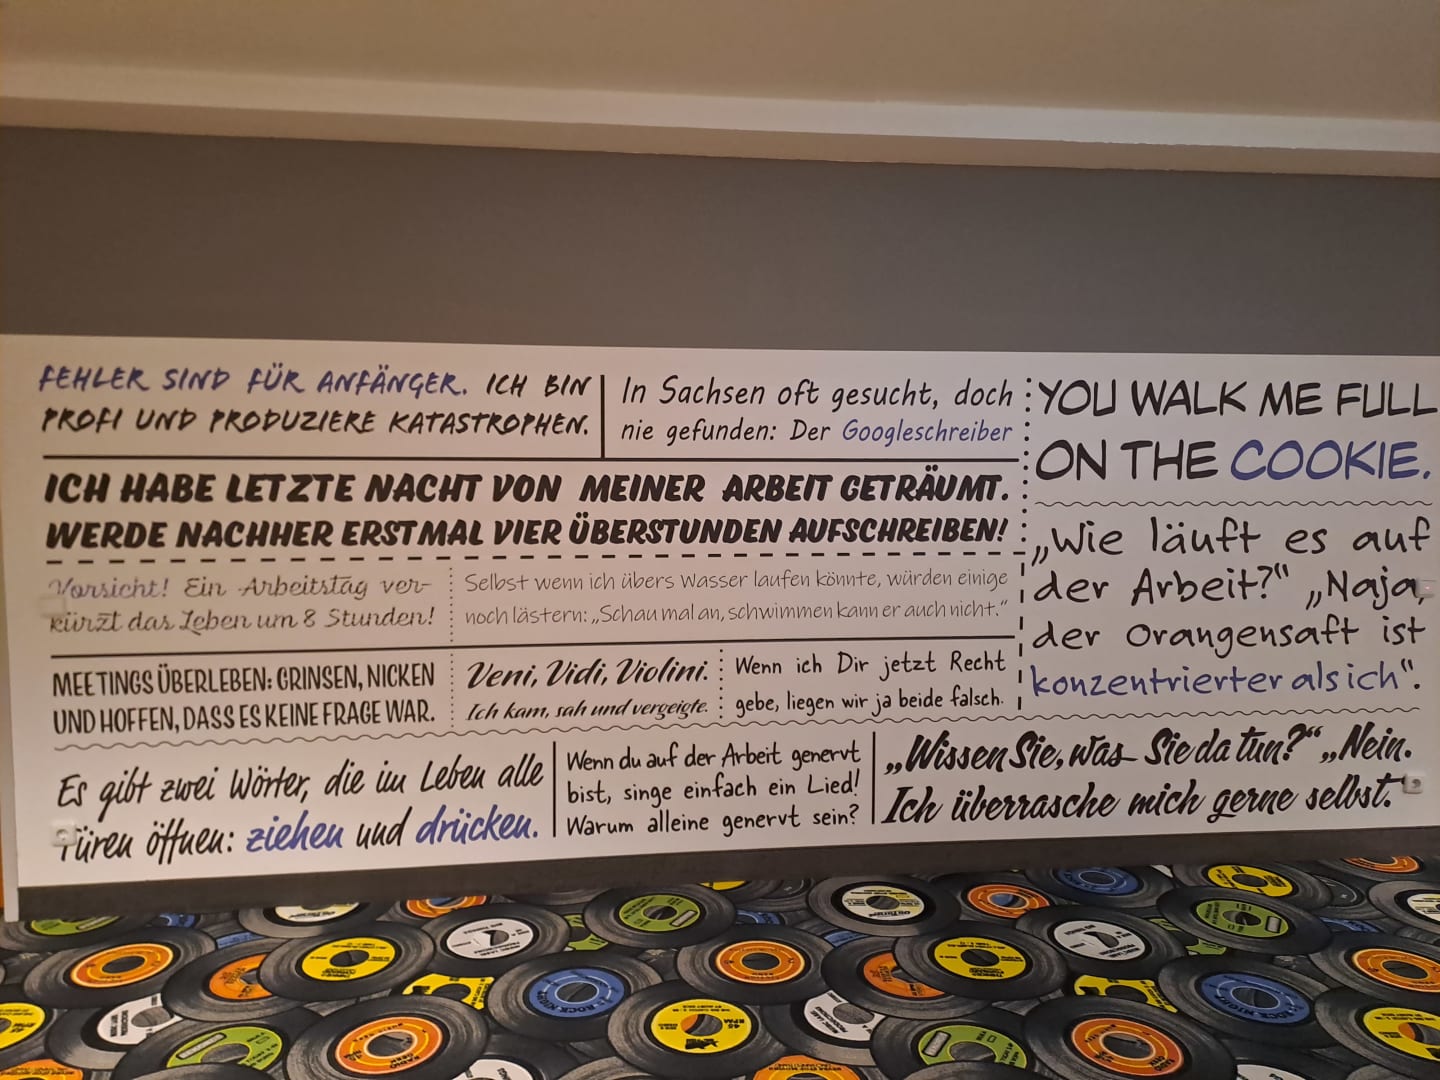 FEHLER SIND FÜR ANFÄNGER. ICH BIN
PROFI UND PRODUZIERE KATASTROPHEN.
In Sachsen oft gesucht, doch
nie gefunden: Der Googleschreiber
YOU WALK ME FULL
ON THE COOKIE.
ICH HABE LETZTE NACHT VON MEINER ARBEIT GETRÄUMT.
WERDE NACHHER ERSTMAL VIER ÜBERSTUNDEN AUFSCHREIBEN!
„Wie läuft es auf
der Arbeit?“ „Naja,
der Orangensaft ist
konzentrierter als ich“.
Vorsicht! Ein Arbeitstag ver-
kürzt das Leben um 8 Stunden!
Selbst wenn ich übers Wasser laufen könnte, würden einige
noch lästern: „Schau mal an, schwimmen kann er auch nicht.“
MEETINGS ÜBERLEBEN: GRINSEN, NICKEN
UND HOFFEN, DASS ES KEINE FRAGE WAR.
Veni, Vidi, Violini.
Ich kam, sah und vergeigte.
Wenn ich Dir jetzt Recht
gebe, liegen wir ja beide falsch.
Es gibt zwei Wörter, die im Leben alle
Türen öffnen: ziehen und drücken.
Wenn du auf der Arbeit genervt
bist, singe einfach ein Lied!
Warum alleine genervt sein?
„Wissen Sie, was Sie da tun?“ „Nein.
Ich überrasche mich gerne selbst.“
ROCK NIGHT
45
RPM